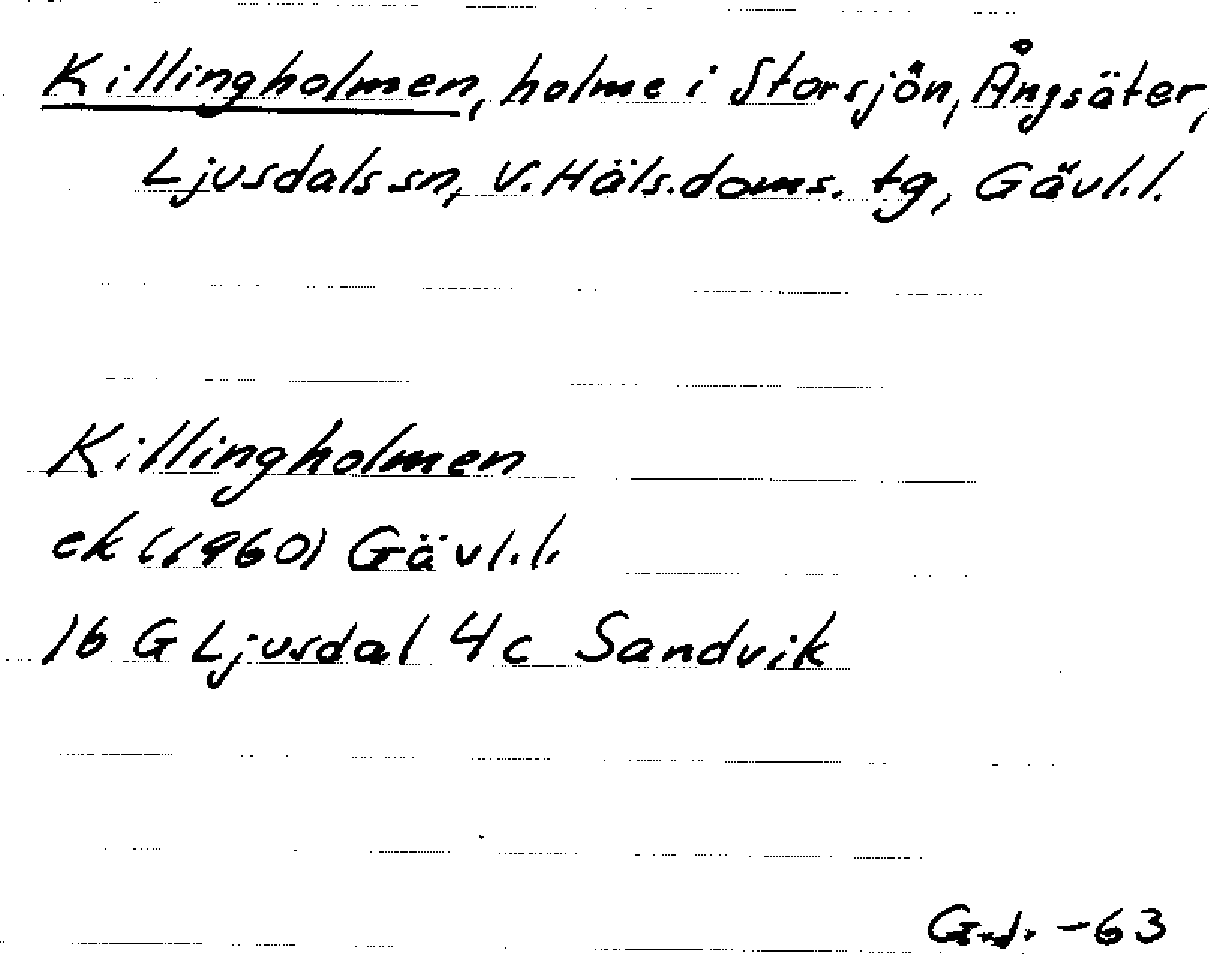 Killingholmen, holme i Storsjön, Ångsäter,
Ljusdals sn, V. Häls. doms. tg, Gävl.l.
Killingholmen
ek (1960) Gävl.l.
16 G Ljusdal 4c Sandvik
G.J. -63